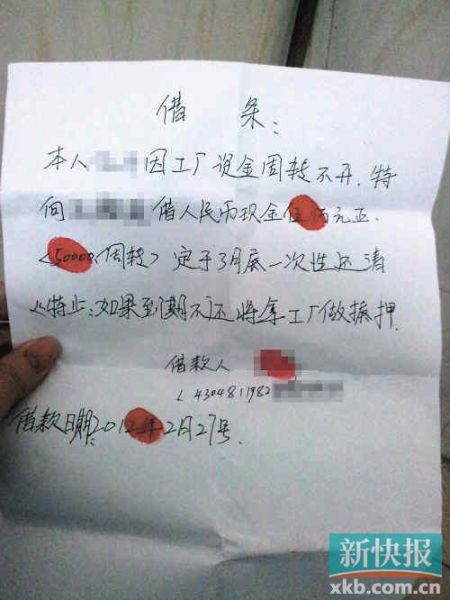 借 条:
本人 因工厂资金周转不开.特
向 借人民币现金伍 元正.
<50000周转> 定于3月底一次性还清
<特止:如果到期不还将拿工厂做抵押.
借款人
<4304811982
借款日期:2012年2月27号.
新快报
xkb.com.cn